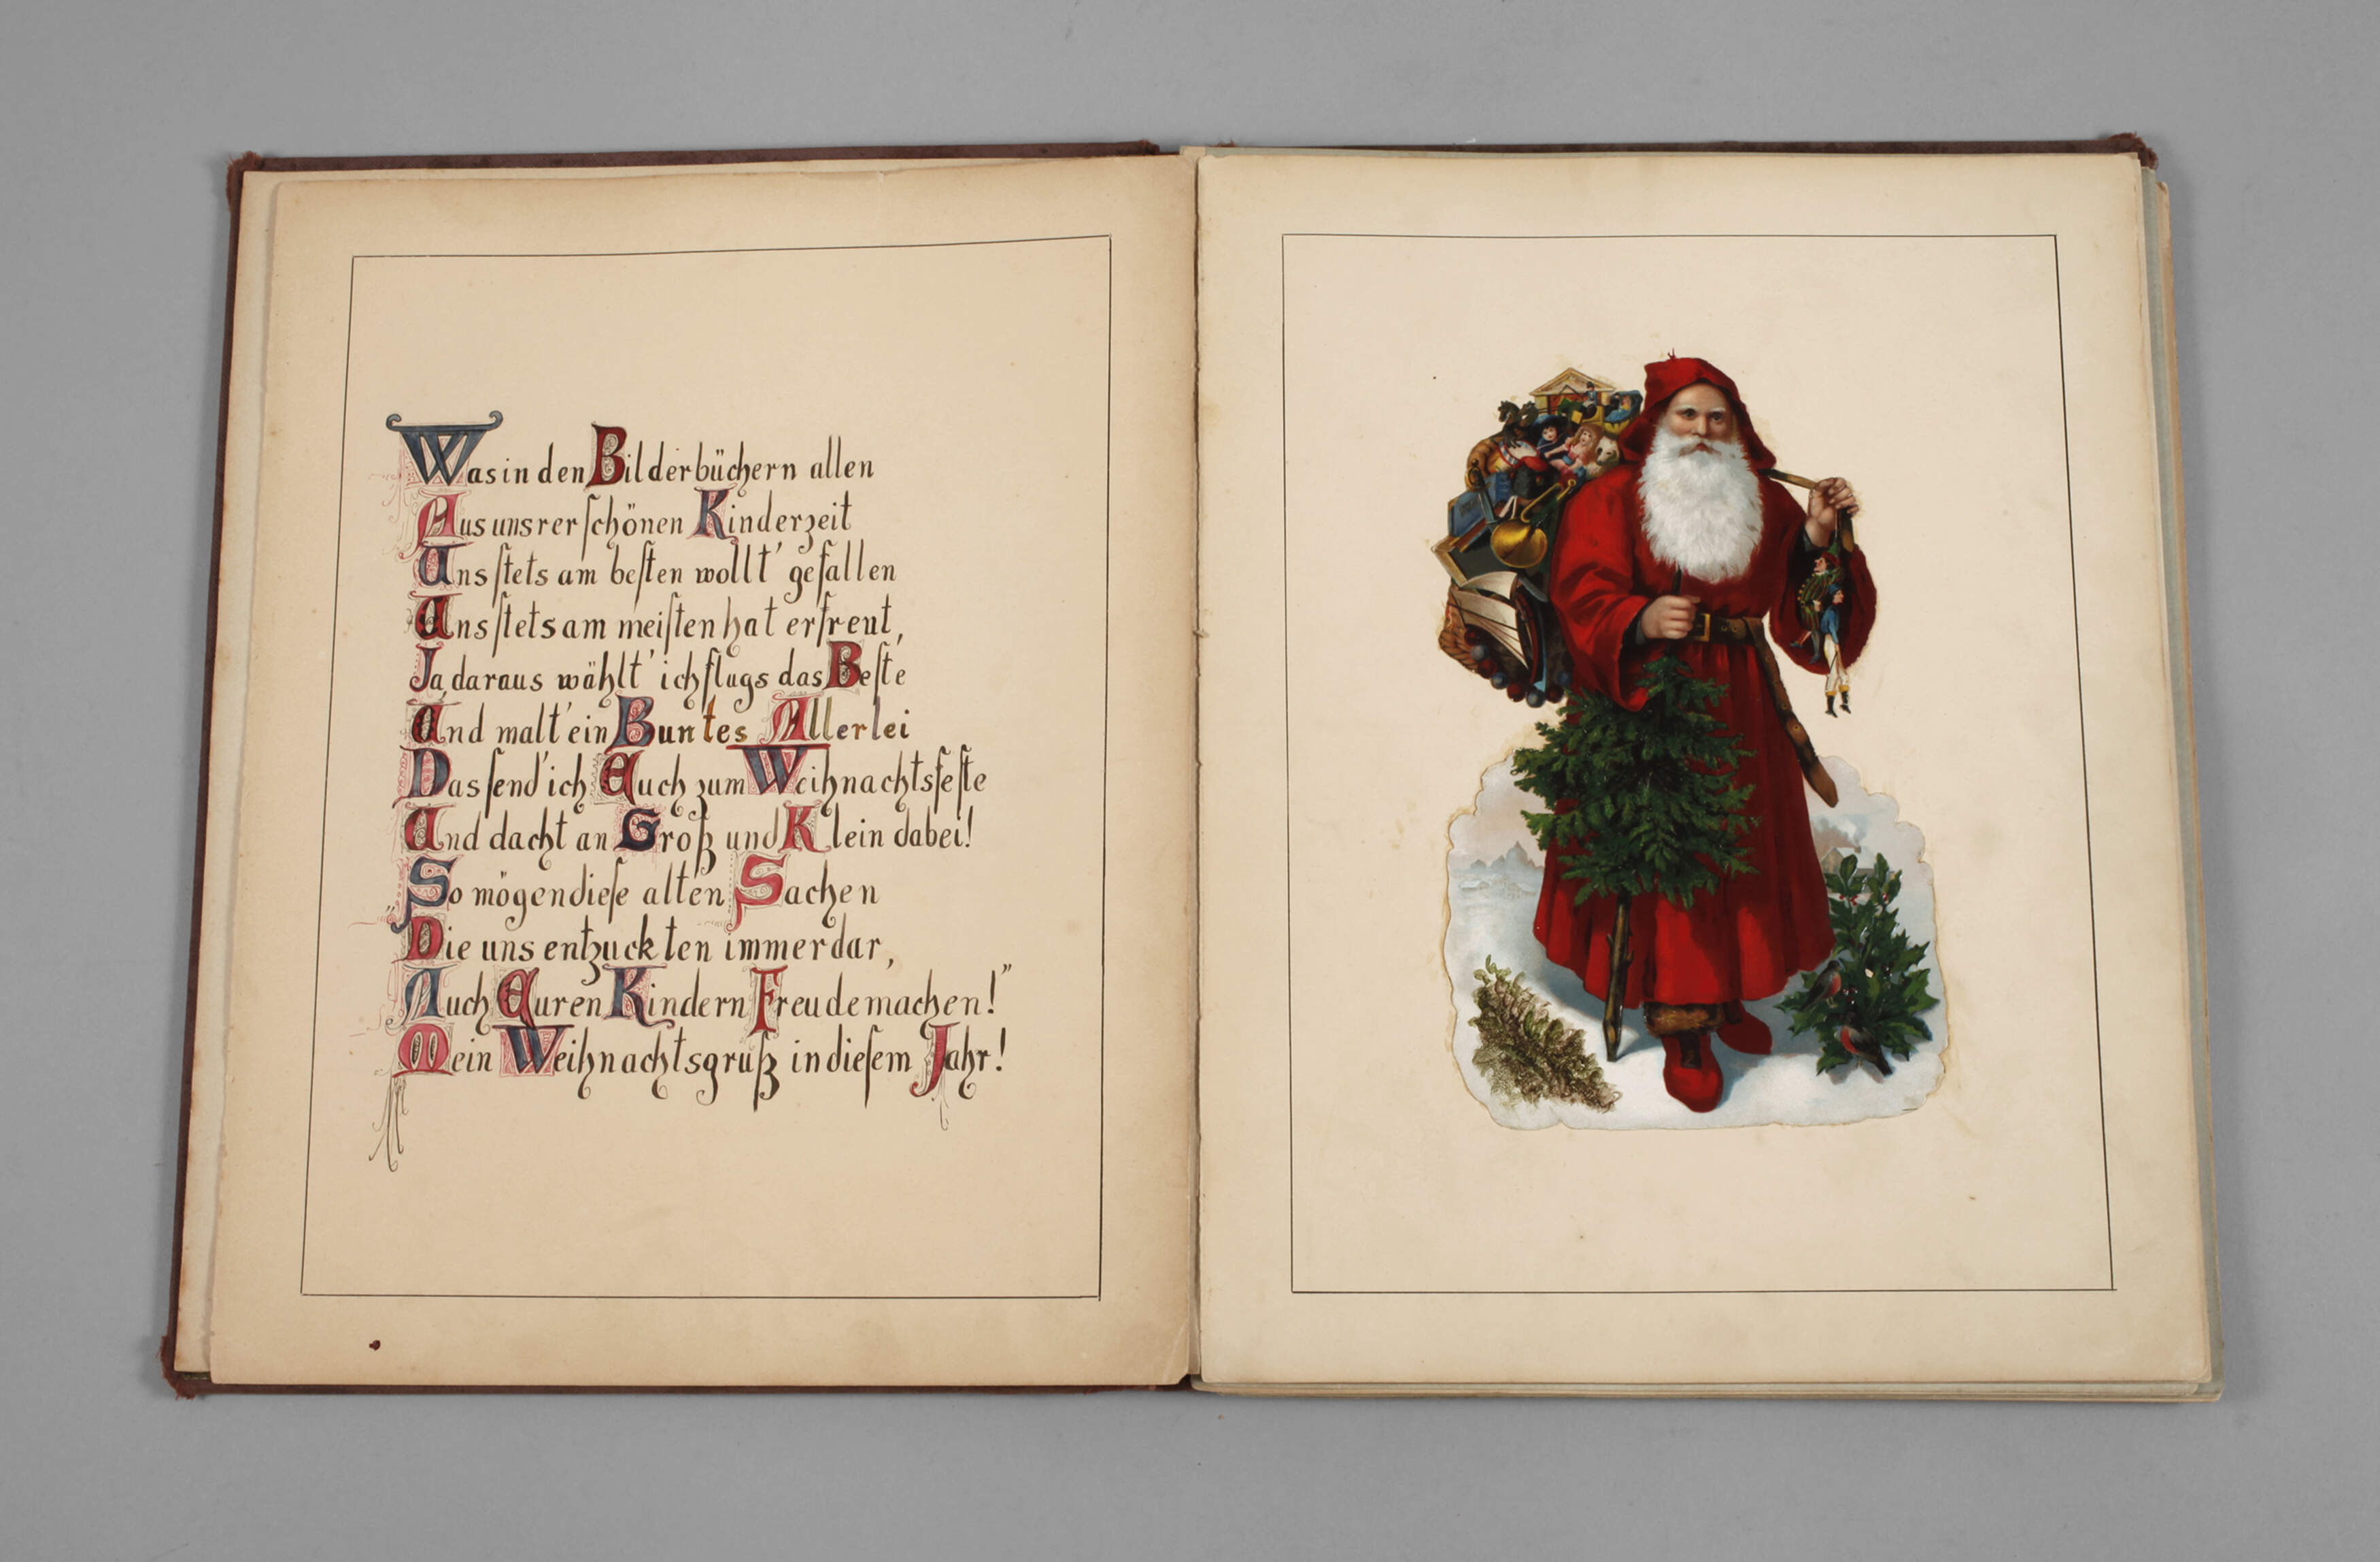 Was in den Bilderbüchern allen
Aus unsrer schönen Kinderzeit
Uns stets am besten wollt' gefallen
Uns stets am meisten hat erfreut,
Ja, daraus wählt' ich flugs das Beste
Und malt' ein Buntes Allerlei
Das send' ich Euch zum Weihnachtsfeste
Und dacht an Groß und Klein dabei!
„So mögen diese alten Sachen
Die uns entzuckten immerdar,
Auch Euren Kindern Freude machen!"
Mein Weihnachtsgruß in diesem Jahr!